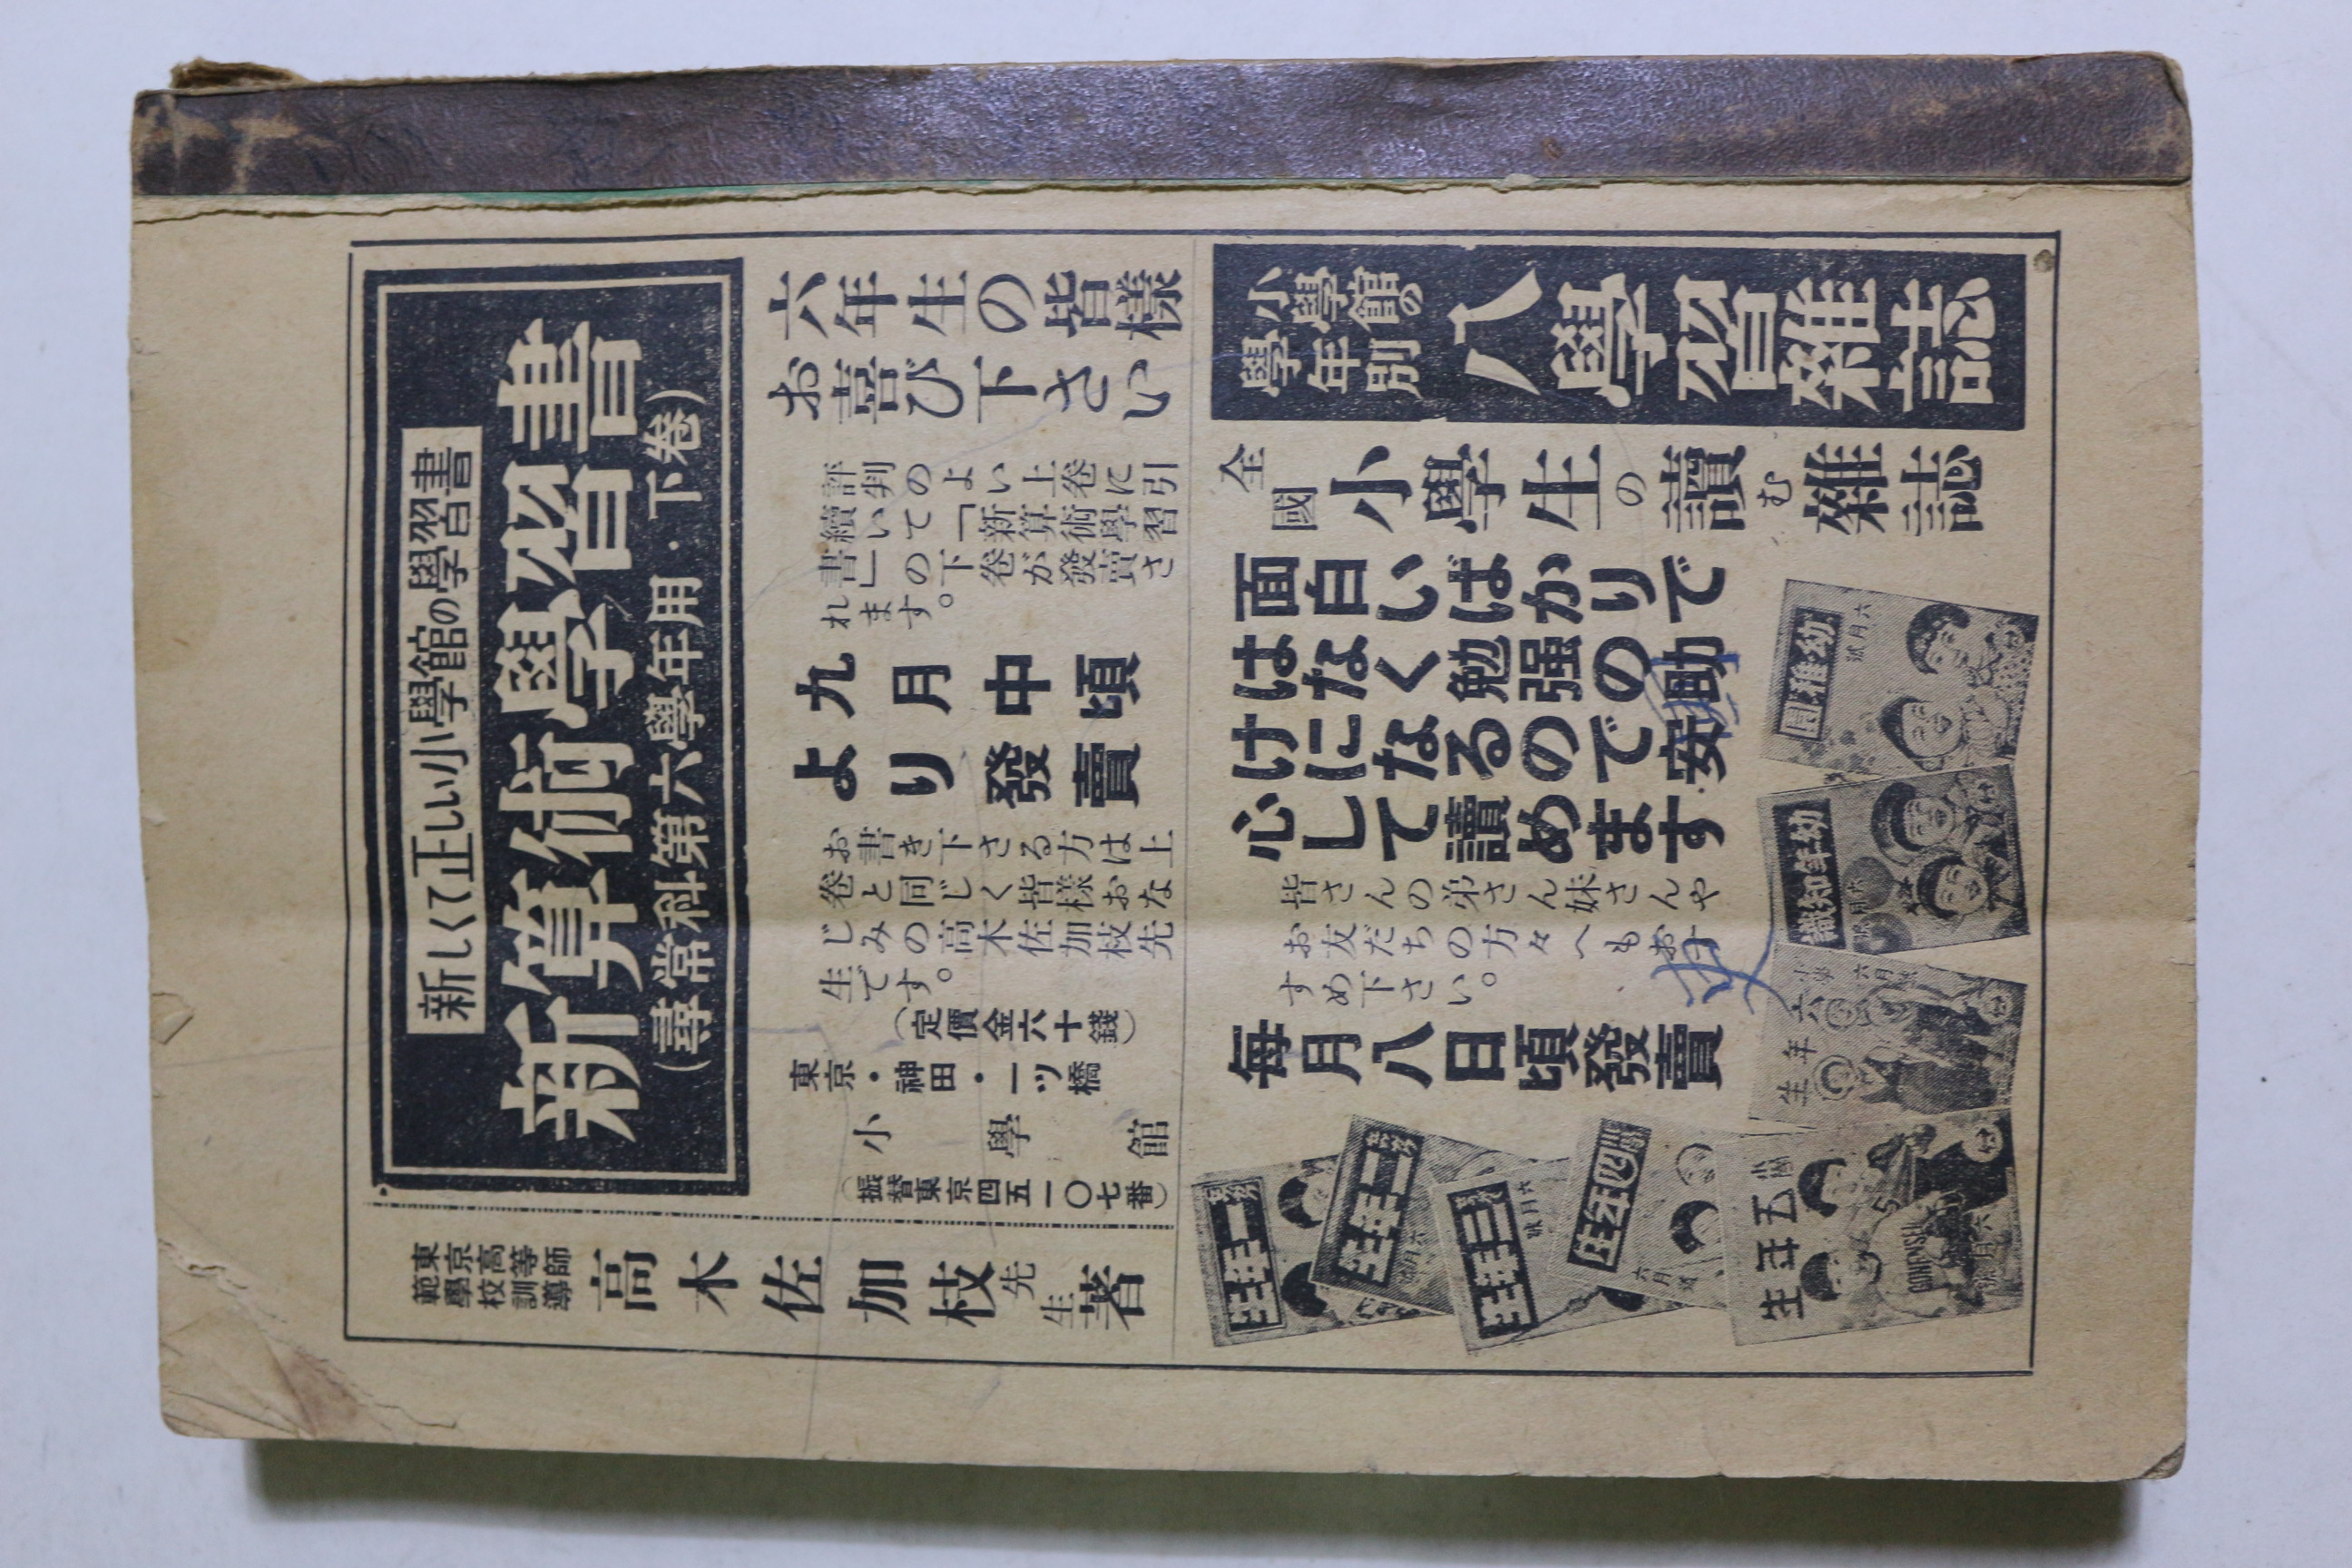 新しくて正しい小學館の學習書
新算術學習書
(尋常科第六學年用・下卷)
六年生の皆樣
お喜び下さい
評判のよい上卷に引
續いて「新算術學習
書」の下卷が發賣さ
れます。
九月中頃
より發賣
お書き下さる方は上
卷と同じく皆樣おな
じみの高木佐加枝先
生です。
(定價金六十錢)
東京・神田・一ツ橋
小學館
(振替東京四五一〇七番)
東京高等師
範學校訓導
高木佐加枝先生著
小學館の
學年別
八學習雜誌
全國小學生の讀む雜誌
面白いばかりで
はなく勉强の助
けになるので安
心して讀めます
皆さんの弟さん妹さんや
お友だちの方々へもおす
すめ下さい。
每月八日頃發賣
幼稚園
六月號
幼年知識
六月號
小學
六年生
六月號
小學
五年生
GONENSEI
六月號
四年生
六月號
三年生
六月號
二年生
六月號
一年生
吏